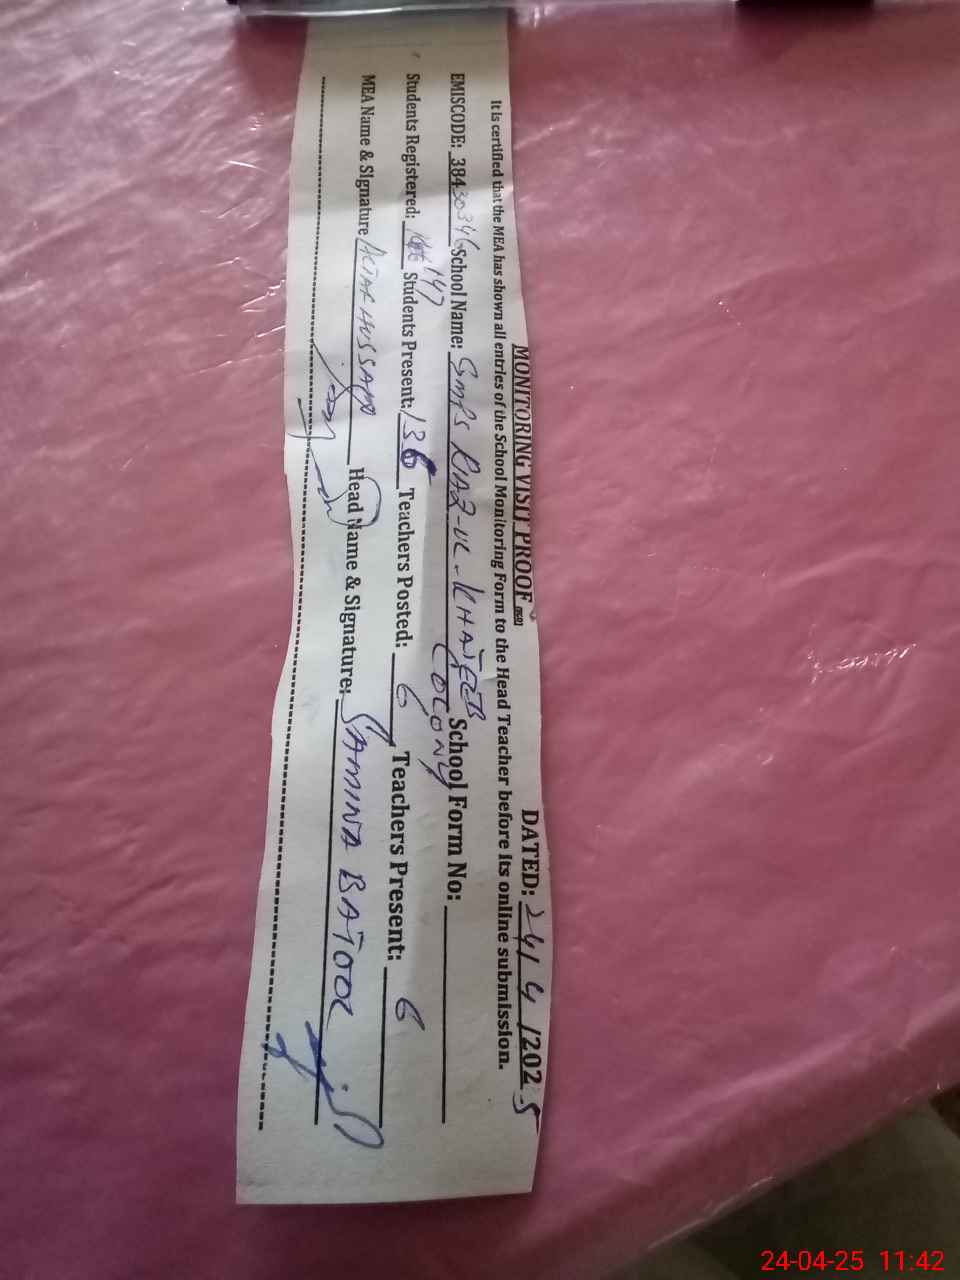 MONITORING VISIT PROOF DATED: 24/4/2025
It is certified that the MEA has shown all entries of the School Monitoring Form to the Head Teacher before its online submission.
EMISCODE: 38430346 School Name: GMPS RIAZ-UL-KHATEEB COLONY School Form No:
Students Registered: 147 Students Present: 136 Teachers Posted: 6 Teachers Present: 6
MEA Name & Signature Head Name & Signature: SAMINA BATOOL
24-04-25 11:42